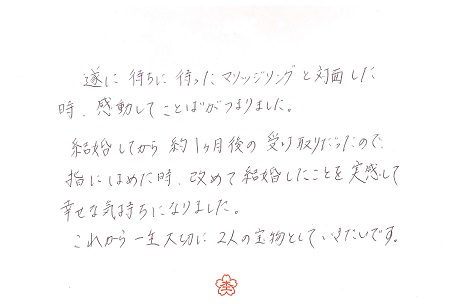 遂に待ちに待ったマリッジリングと対面した
時、感動してことばがつまりました。
結婚してから約1ヶ月後の受け取りだったので、
指にはめた時、改めて結婚したことを実感して
幸せな気持ちになりました。
これから一生大切に2人の宝物としていきたいです。